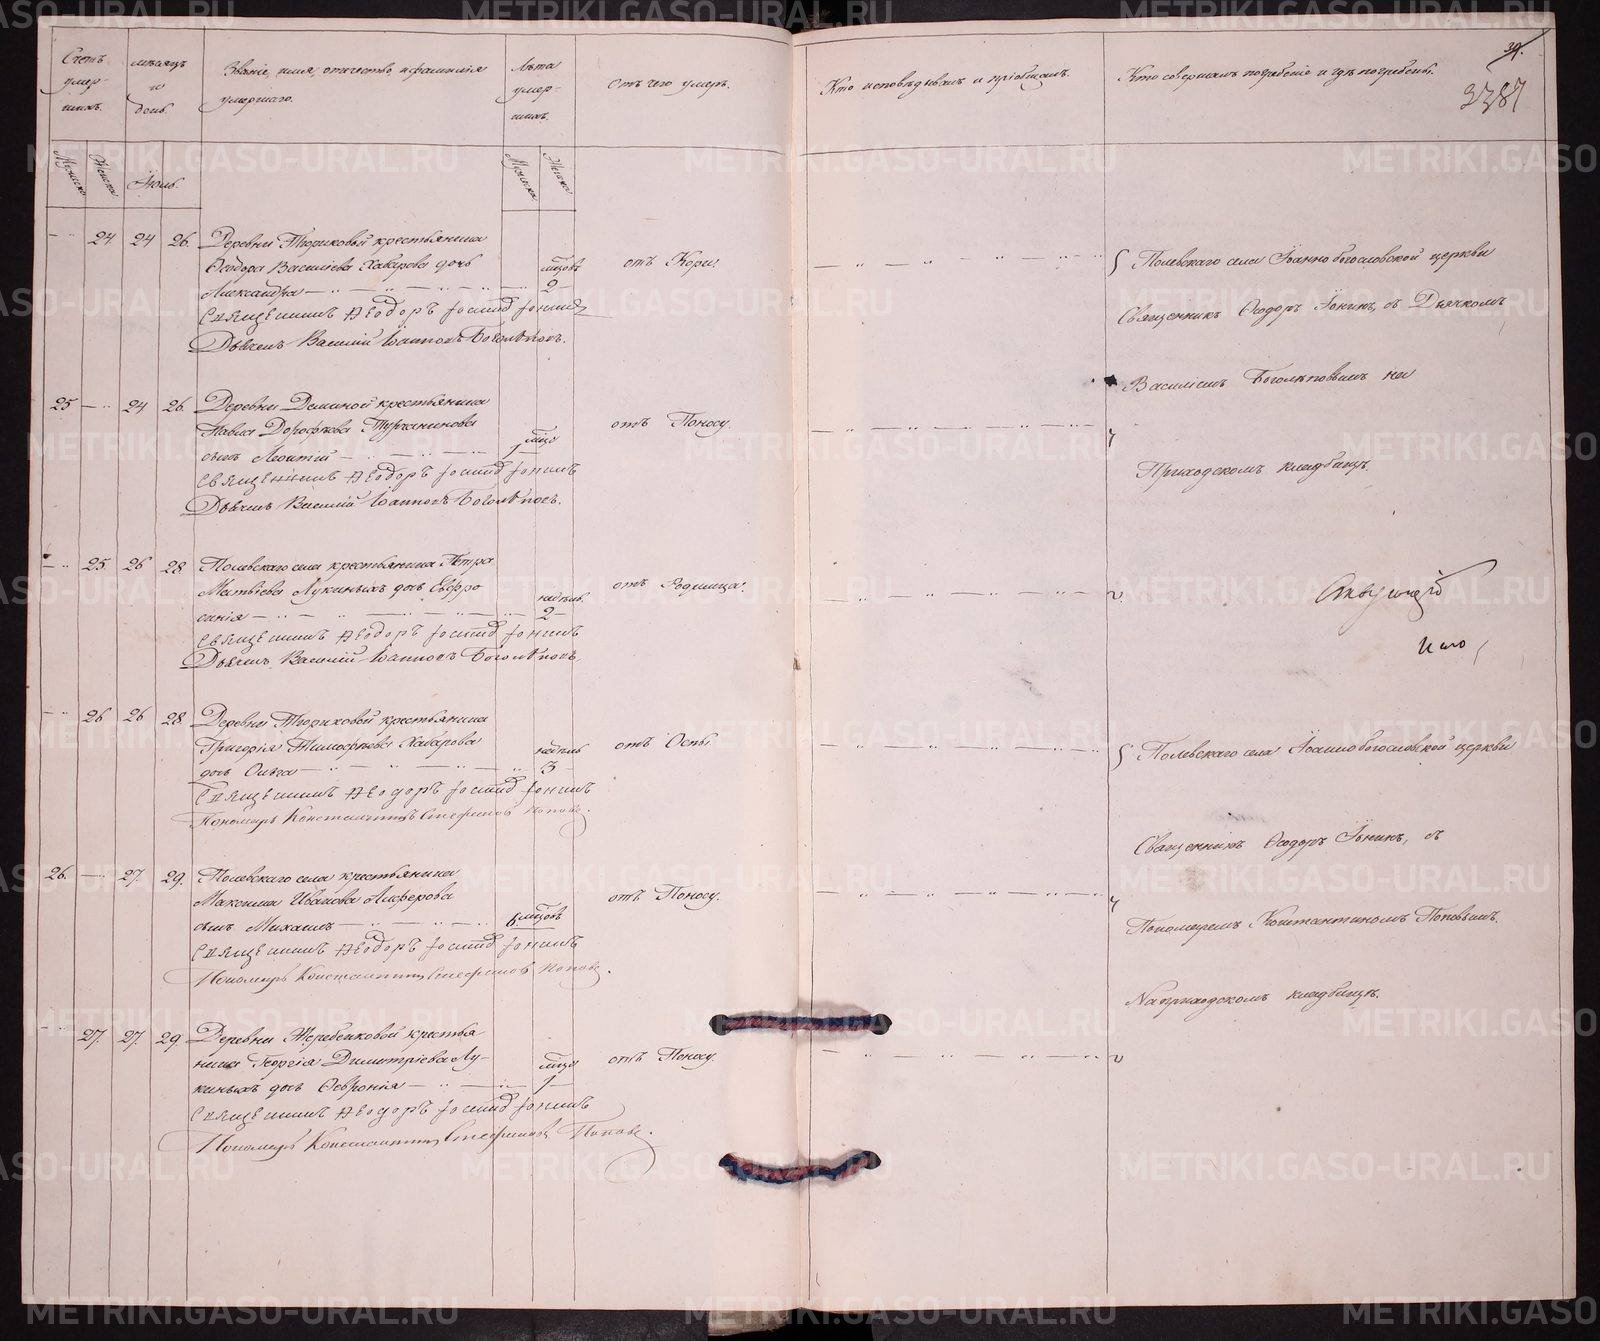 Счетъ умер-шихъ.
мѣсяцъ и день.
Званіе, имя, отчество, и фамилія умершаго.
Лѣта умер-шихъ.
Отъ чего умеръ.
Кто исповѣдывалъ и пріобщалъ.
Кто совершалъ погребеніе и гдѣ погребены.
39.
Мужска
Женска
Іюль.
Мужска
Женска
24 24 26. Деревни Тюриковой крестьянина
Ѳеодора Василіева Хабарова дочь
Александра
мцовъ 2
отъ Кори.
Священникъ Ѳеодоръ Іоаннов Іонинъ
Дьячекъ Василій Іоанновъ Боголѣповъ.
25 24 26. Деревни Деминой крестьянина
Павла Дороѳѣева Турчанинова
сынъ Леонтій
1 мцъ
отъ Поносу.
Священникъ Ѳеодоръ Іонинъ
Дьячекъ Василій Іоанновъ Боголѣповъ.
25 26 28 Полевскаго села крестьянина Петра
Матвѣева Лукиныхъ дочь Евфро
синія
недѣль. 2
отъ Родимца.
Священникъ Ѳеодоръ Іонинъ
Дьячекъ Василій Іоанновъ Боголѣповъ.
26 26 28 Деревни Тюриковой крестьянина
Григорія Тимоѳѣева Хабарова
дочь Ольга
недѣль 3
отъ Оспы
Священникъ Ѳеодоръ Іонинъ
Пономарь Константинъ Стефановъ Поповъ.
26. 27. 29. Полевскаго села крестьянина
Максима Иванова Алферова
сынъ Михаилъ
6 мцовъ
отъ Поносу.
Священникъ Ѳеодоръ Іонинъ
Пономарь Константинъ Стефановъ Поповъ.
27. 27. 29. Деревни Жеребенковой крестья
нина Георгія Димитріева Лу-
киныхъ дочь Ѳевронія
мцъ 1
отъ Поносу.
Священникъ Ѳеодоръ Іонинъ
Пономарь Константинъ Стефановъ Поповъ.
Полевскаго села Іоанно богословской церкви
Священникъ Ѳеодоръ Іонинъ, съ Дьячкомъ
Василіемъ Боголѣповымъ на
Приходскомъ кладбищѣ.
Полевскаго села Іоанно богословской церкви
Священникъ Ѳеодоръ Іонинъ, съ
Пономаремъ Константиномъ Поповымъ.
На приходскомъ кладбищѣ.
METRIKI.GASO-URAL.RU